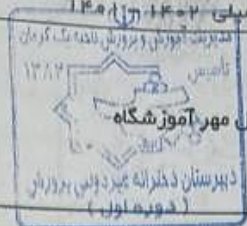 یلی ۱۴۰۲-۱۴۰۱
مدیریت آموزش و پرورش ناحیه یک کرمان
تأسیس
۱۳۸۲
مهر آموزشگاه
دبیرستان دخترانه غیردولتی
(دوره اول)